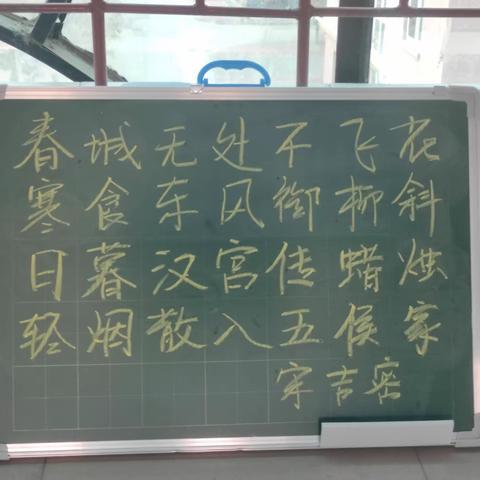 春城无处不飞花
寒食东风御柳斜
日暮汉宫传蜡烛
轻烟散入五侯家
宋吉密